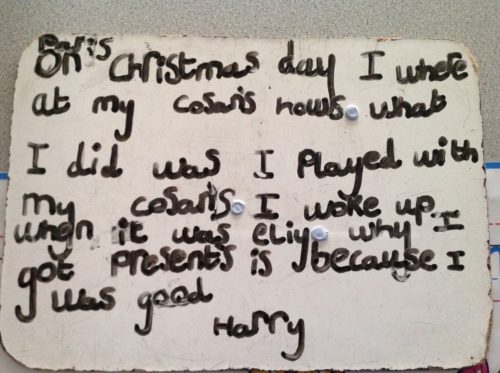 Paris
On Christmas day I where
at my cosaris hows. what
I did was I Played with
my cosaris. I woke up
when it was eliy. why I
got presents is because I
was good
Harry